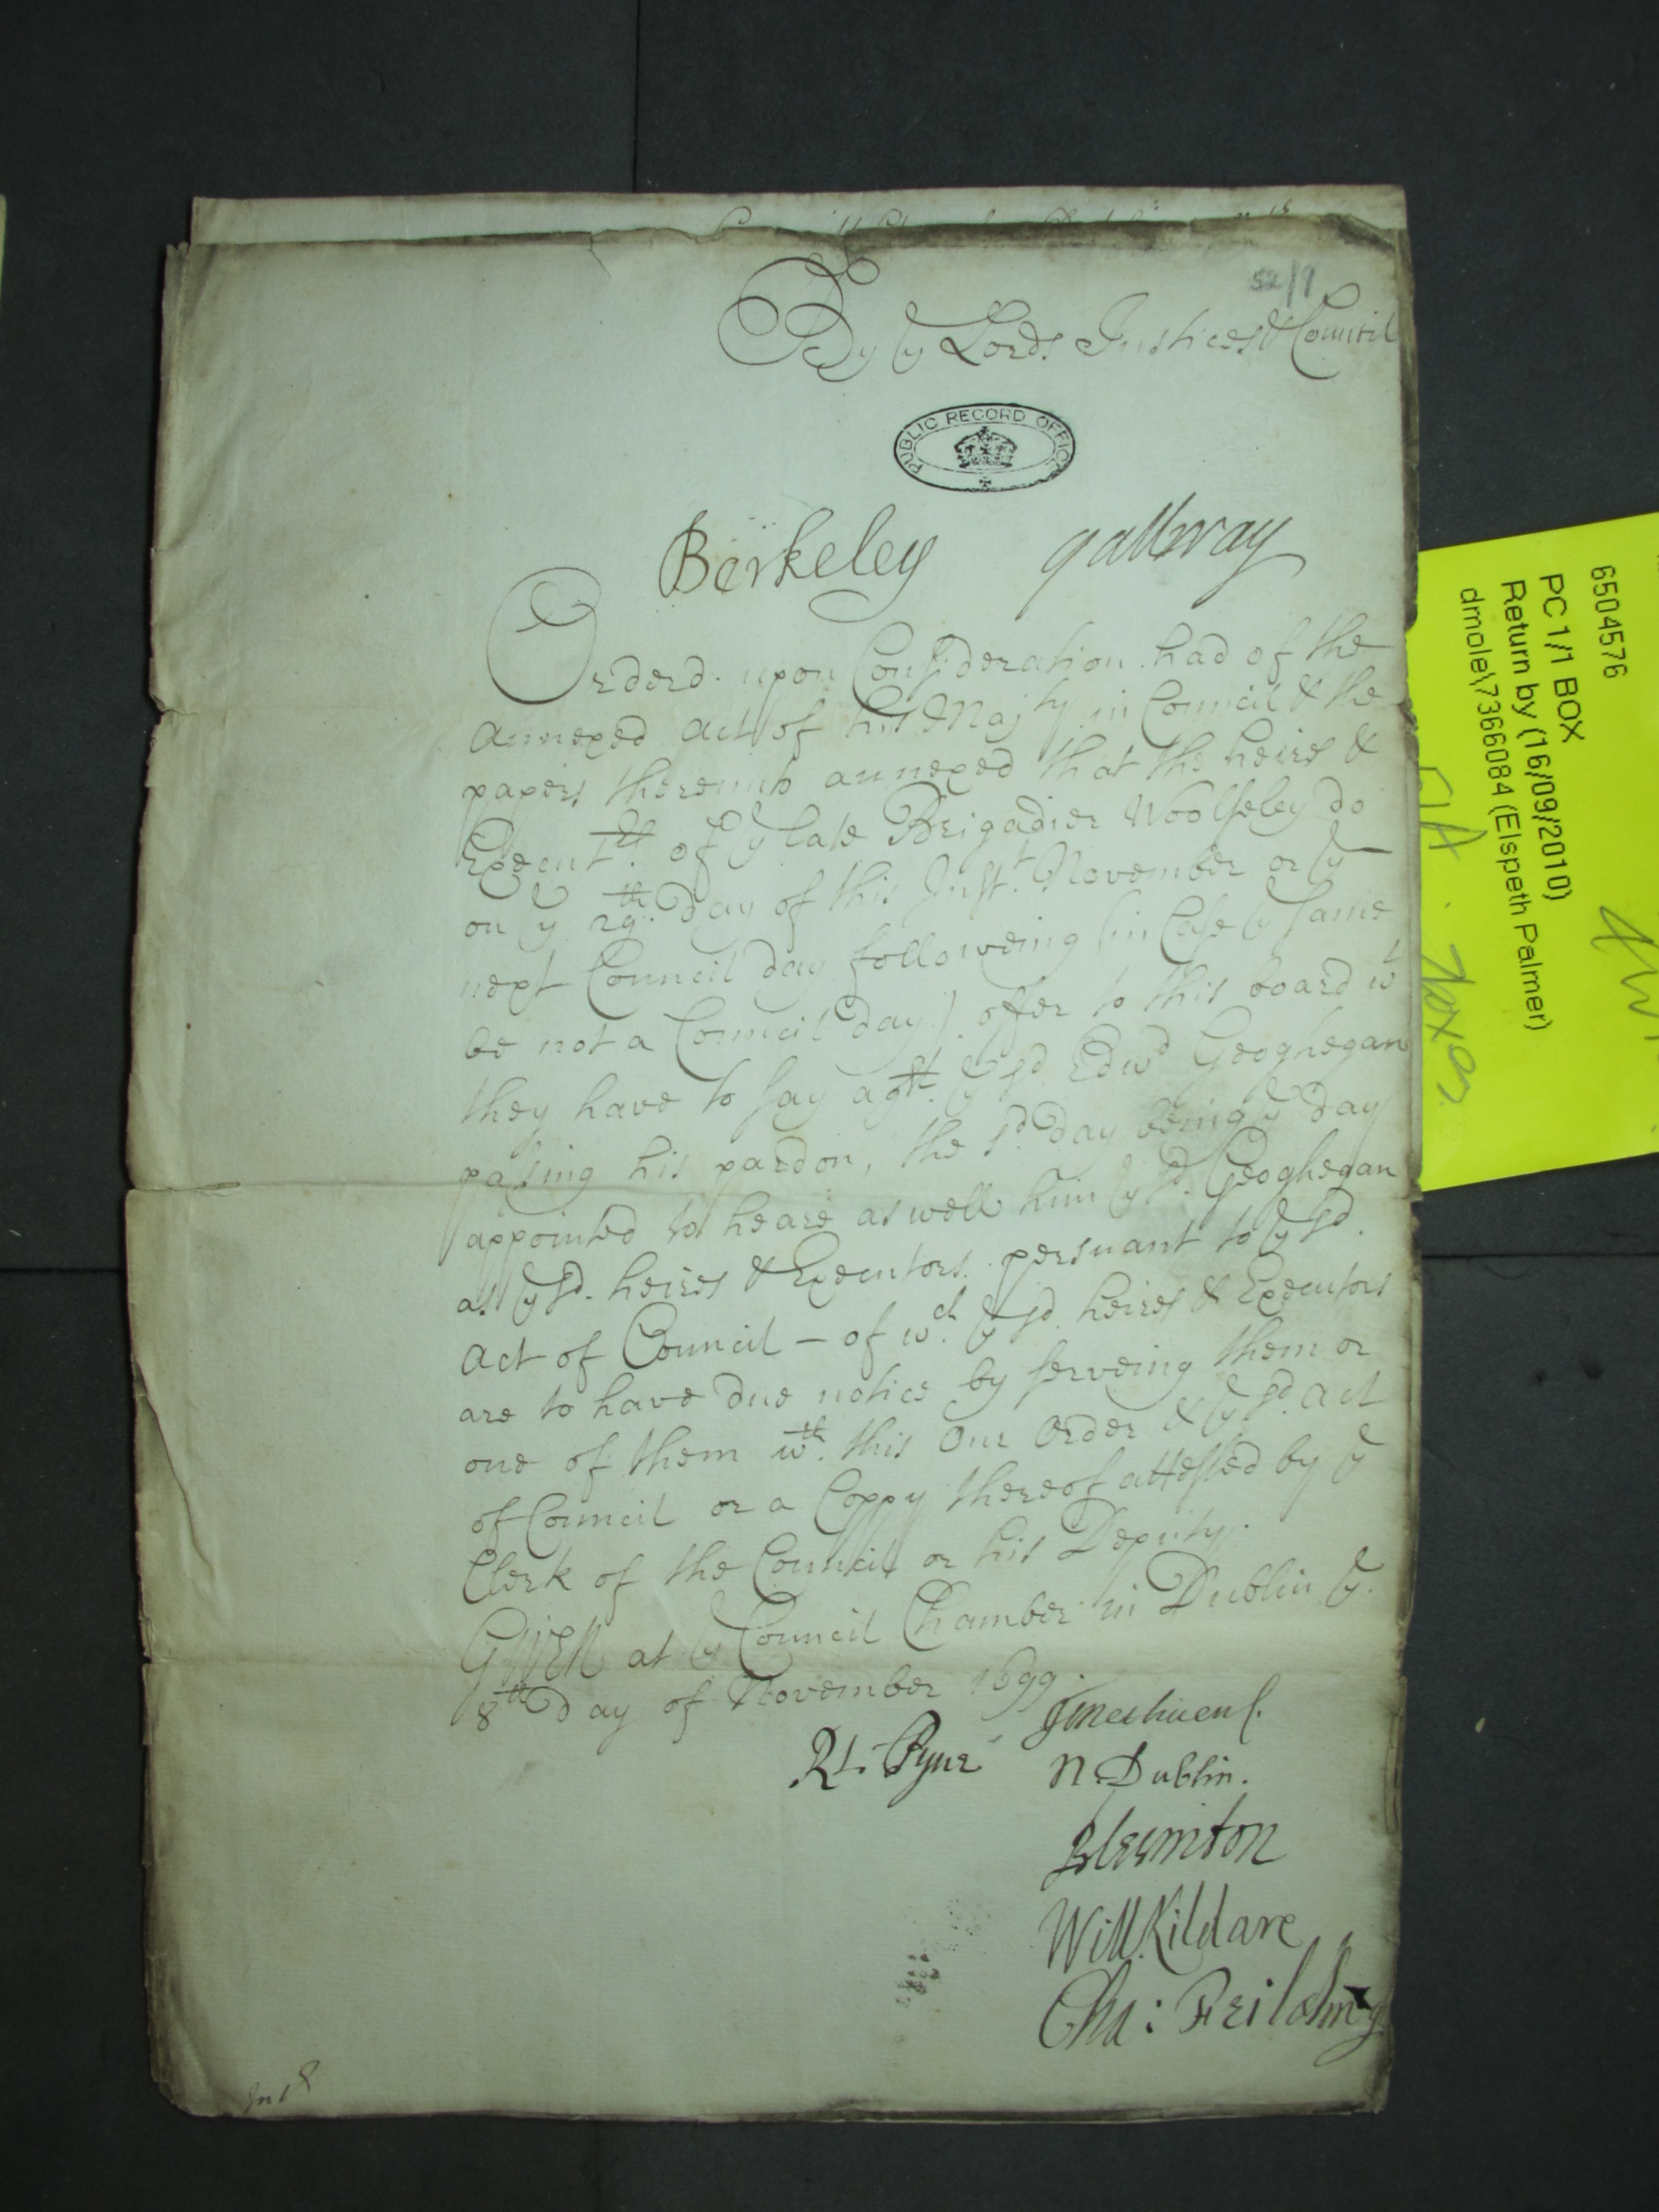 52/1
By ye Lords Justices & Council
PUBLIC RECORD OFFICE
Berkeley gallway
Orderd upon Consideration had of the
annexed act of his Majty in Council & the
papers thereunto annexed that the heires &
Execut.rs of ye late Brigadier Woolseley do
on ye 29th day of this Inst.t November or ye
next Council day followeing (in Case ye same
be not a Council day) offer to this board wt
they have to say agst. ye sd. Edwd Geoghegan
passing his pardon, the sd. day being ye day
appointed to heare as well him ye sd. Geoghegan
as ye sd. heires & Executors persuant to ye sd.
Act of Council - of wch. ye sd. heires & Executors
are to have due notice by serveing them or
one of them wth. this Our Order & ye sd. act
of Council or a Coppy thereof attested by ye
Clerk of the Council or his Deputy.
GIVEN at ye Council Chamber in Dublin ye.
8th day of November 1699.
J Methuen C.
Rd. Pyne N. Dublin.
Blesinton
Will Kildare
Cha: Feilding
6504576
PC 1/1 BOX
Return by (16/09/2010)
dmole\7366084 (Elspeth Palmer)